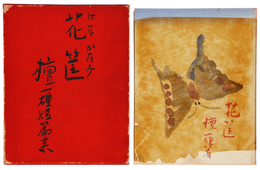 はながたみ
花筐
檀一雄短篇集
花筐
檀一雄著